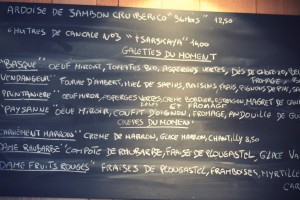 ARDOISE DE JAMBON CRU IBERICO "36 MOIS" 12,50
6 HUITRES DE CANCALE N°3 "TSARSKAYA" 14,00
GALETTES DU MOMENT
"BASQUE" OEUF MIROIR, TOMATES BIO, ASPERGES VERTES, DÉS DE
FROMAGE
VENDANGEUR FOURME D'AMBERT, MIEL DE SAPINS, RAISINS FRAIS, PIGNONS DE PIN,
PRINTANIÈRE OEUF MIROIR, ASPERGES VERTES, CRÈME BORDIER, ESTRAGON, MAGRET DE CANARD
ET FROMAGE
"PAYSANNE" OEUF MIROIR, CONFIT D'OIGNON, FROMAGE, ANDOUILLE DE GU
CRÊPES DU MOMENT
CARRÉMENT MARRON CRÈME DE MARRON, GLACE MARRON, CHANTILLY 8,50
DAME RHUBARBE "COMPOTE DE RHUBARBE, FRAISE DE PLOUGASTEL, GLACE VA
DAME FRUITS ROUGES" FRAISES DE PLOUGASTEL, FRAMBOISES, MYRTILLE
CAR